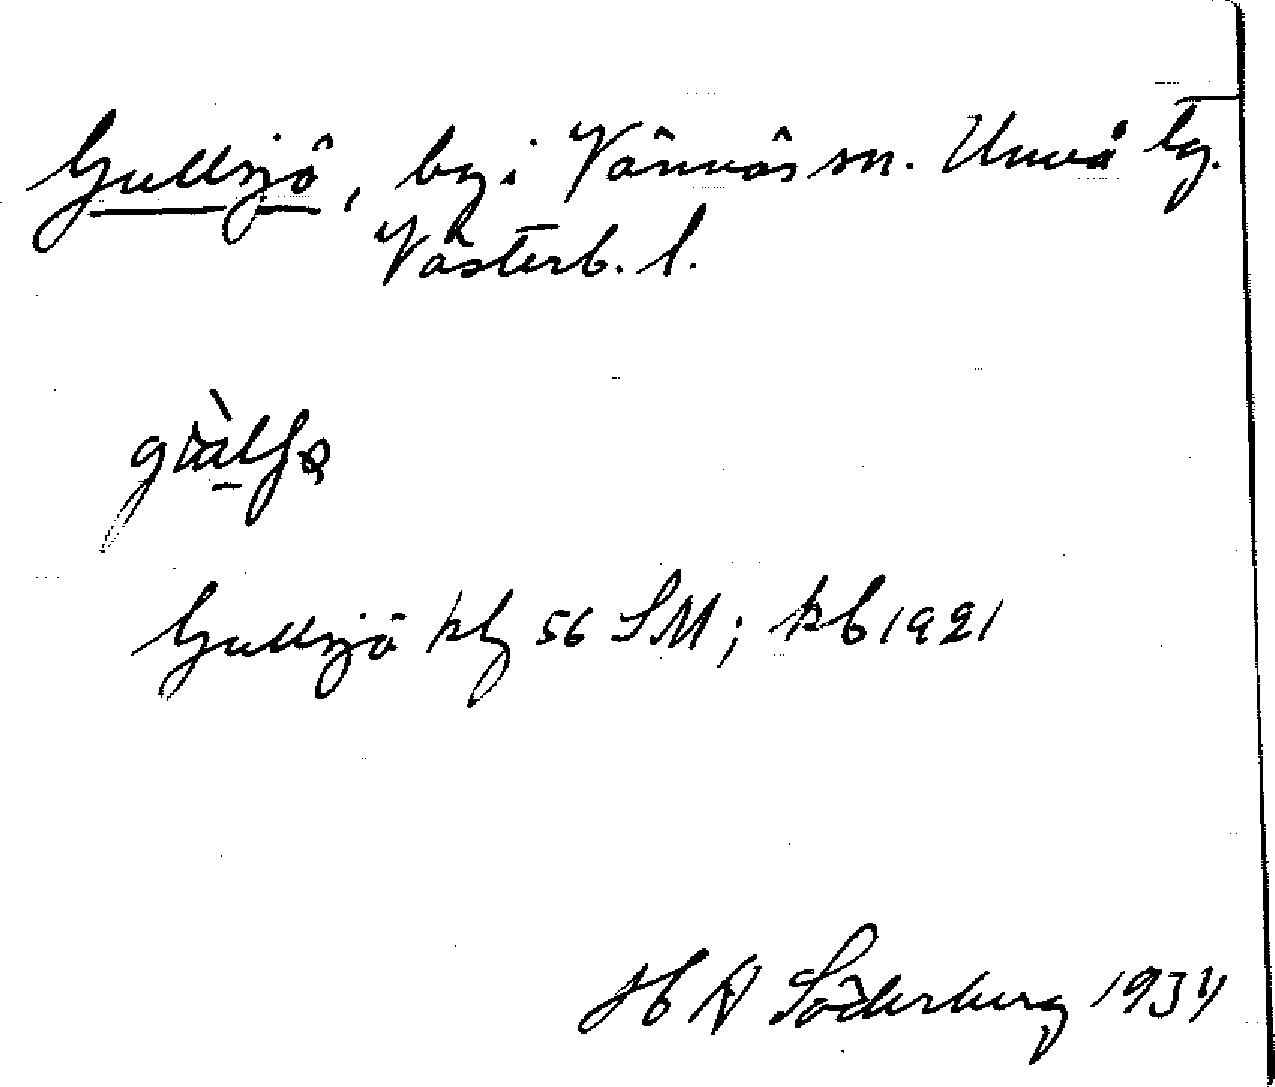 Gullsjö, by i Vännäs sn. Umeå lg.
Västerb. l.
Gullsjö kbg 56 SM; kb 1921
H A Söderberg 1934